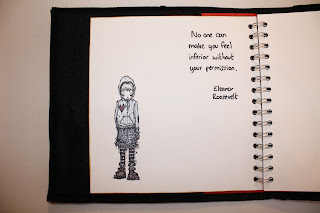 No one can
make you feel
inferior without
your permission.
Eleanor
Roosevelt